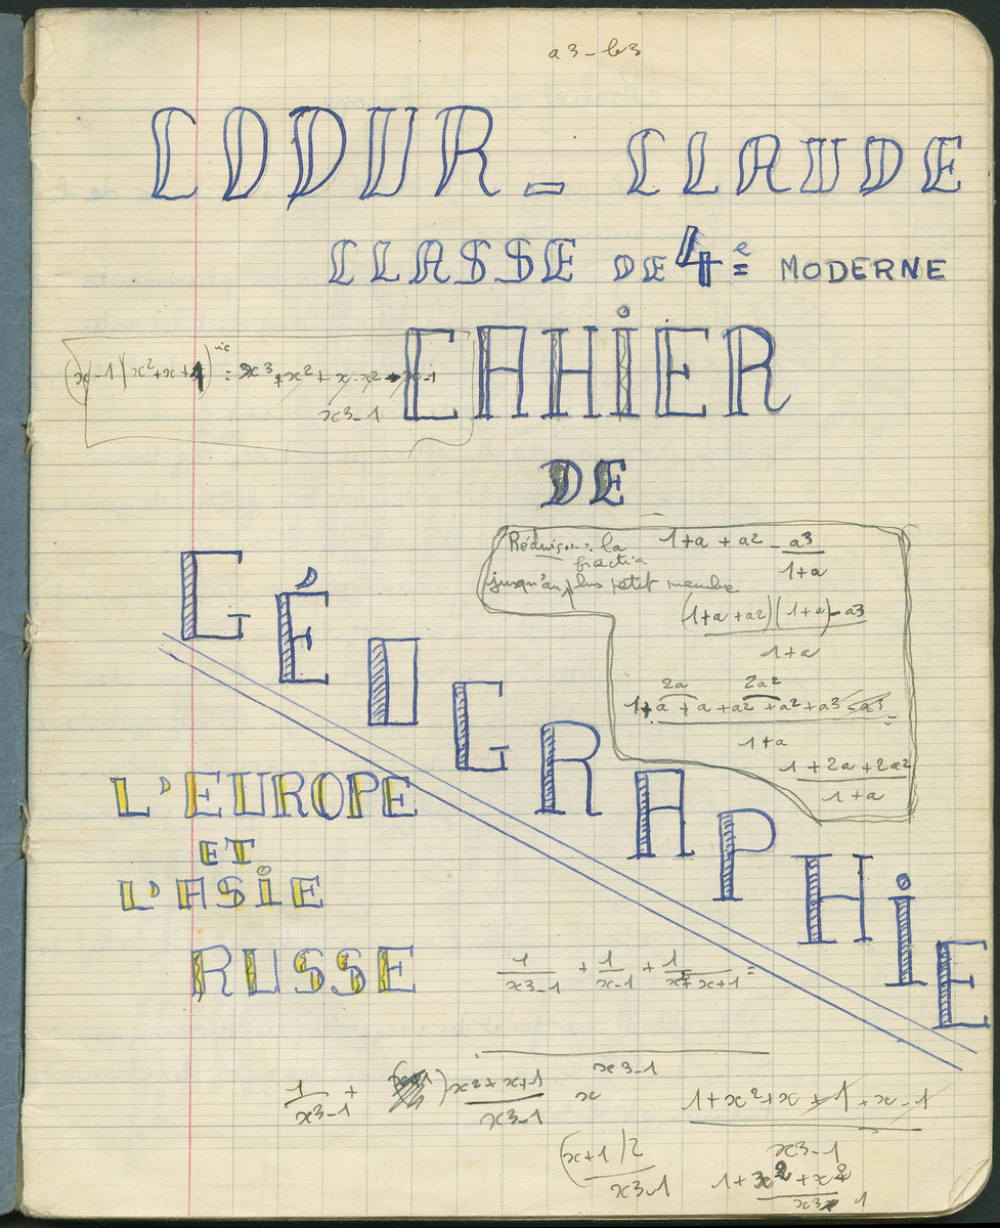 a3-b3
CODUR - CLAUDE
CLASSE DE 4e MODERNE
CAHIER
(x-1)(x²+x+1) = x3+x²+x-x²-x-1
x3-1
DE
GÉOGRAPHIE
Réduis la fraction
jusqu'au plus petit membre
1+a+a2-a3/1+a
(1+a+a2)(1+a)-a3
1+a
2a 2a²
1+a+a+a2+a²+a3-a3
1+a
1+2a+2a²
1+a
L'EUROPE
ET
L'ASiE
RUSSE
1/x3-1 + 1/x-1 + 1/x²+x+1 =
x3-1
1/x3-1 + x2+x+1/x3-1
1+x²+x+1+x-1
x3-1
(x+1)2
x3-1